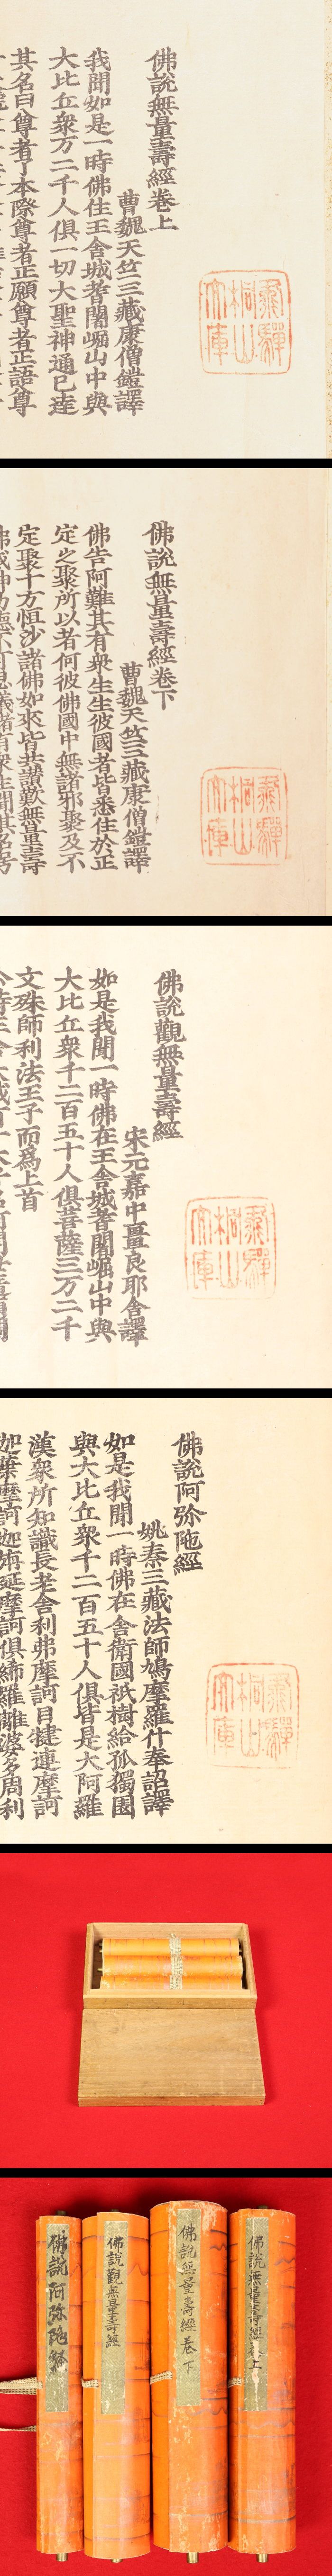 佛說無量壽經卷上
曹魏天竺三藏康僧鎧譯
我聞如是一時佛住王舍城耆闍崛山中與
大比丘衆万二千人俱一切大聖神通已達
其名曰尊者了本際尊者正願尊者正語尊
佛說無量壽經卷下
曹魏天竺三藏康僧鎧譯
佛告阿難其有衆生生彼國者皆悉住於正
定之聚所以者何彼佛國中無諸邪聚及不
定聚十方恒沙諸佛如來皆共讃歎無量壽
佛說觀無量壽經
宋元嘉中畺良耶舍譯
如是我聞一時佛在王舍城耆闍崛山中與
大比丘衆千二百五十人俱菩薩三万二千
文殊師利法王子而爲上首
佛說阿弥陁經
姚秦三藏法師鳩摩羅什奉詔譯
如是我聞一時佛在舍衛國祇樹給孤獨園
與大比丘衆千二百五十人俱皆是大阿羅
漢衆所知識長老舍利弗摩訶目揵連摩訶
迦葉摩訶迦旃延摩訶俱絺羅離婆多周利
佛說無量壽經卷上
佛說無量壽經卷下
佛說觀無量壽經
佛說阿弥陁經